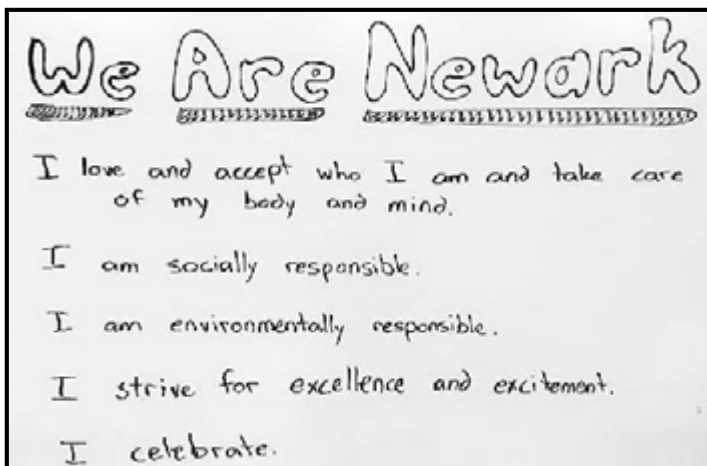 We Are Newark
I love and accept who I am and take care
of my body and mind.
I am socially responsible.
I am environmentally responsible.
I strive for excellence and excitement.
I celebrate.